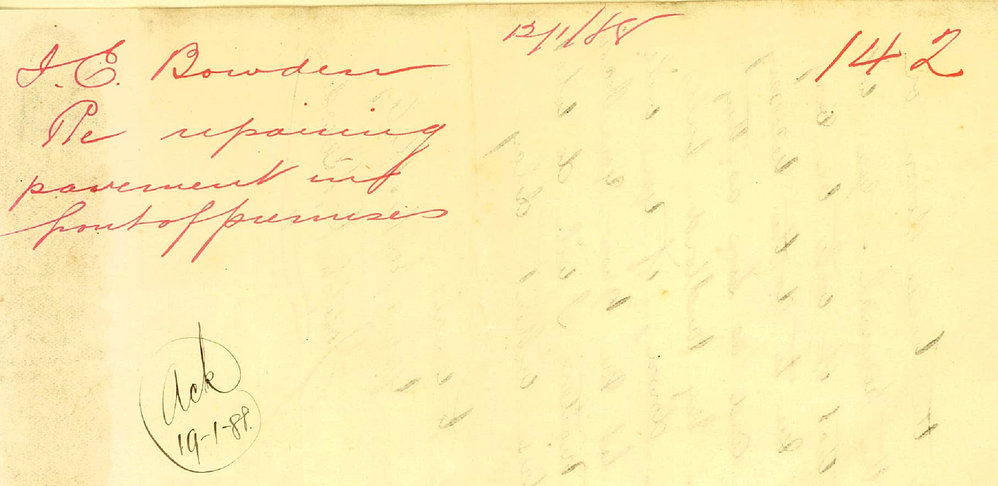 J. E. Bowden
Re repairing
pavement in
front of premises
12/1/88
142
Ack
19-1-88.